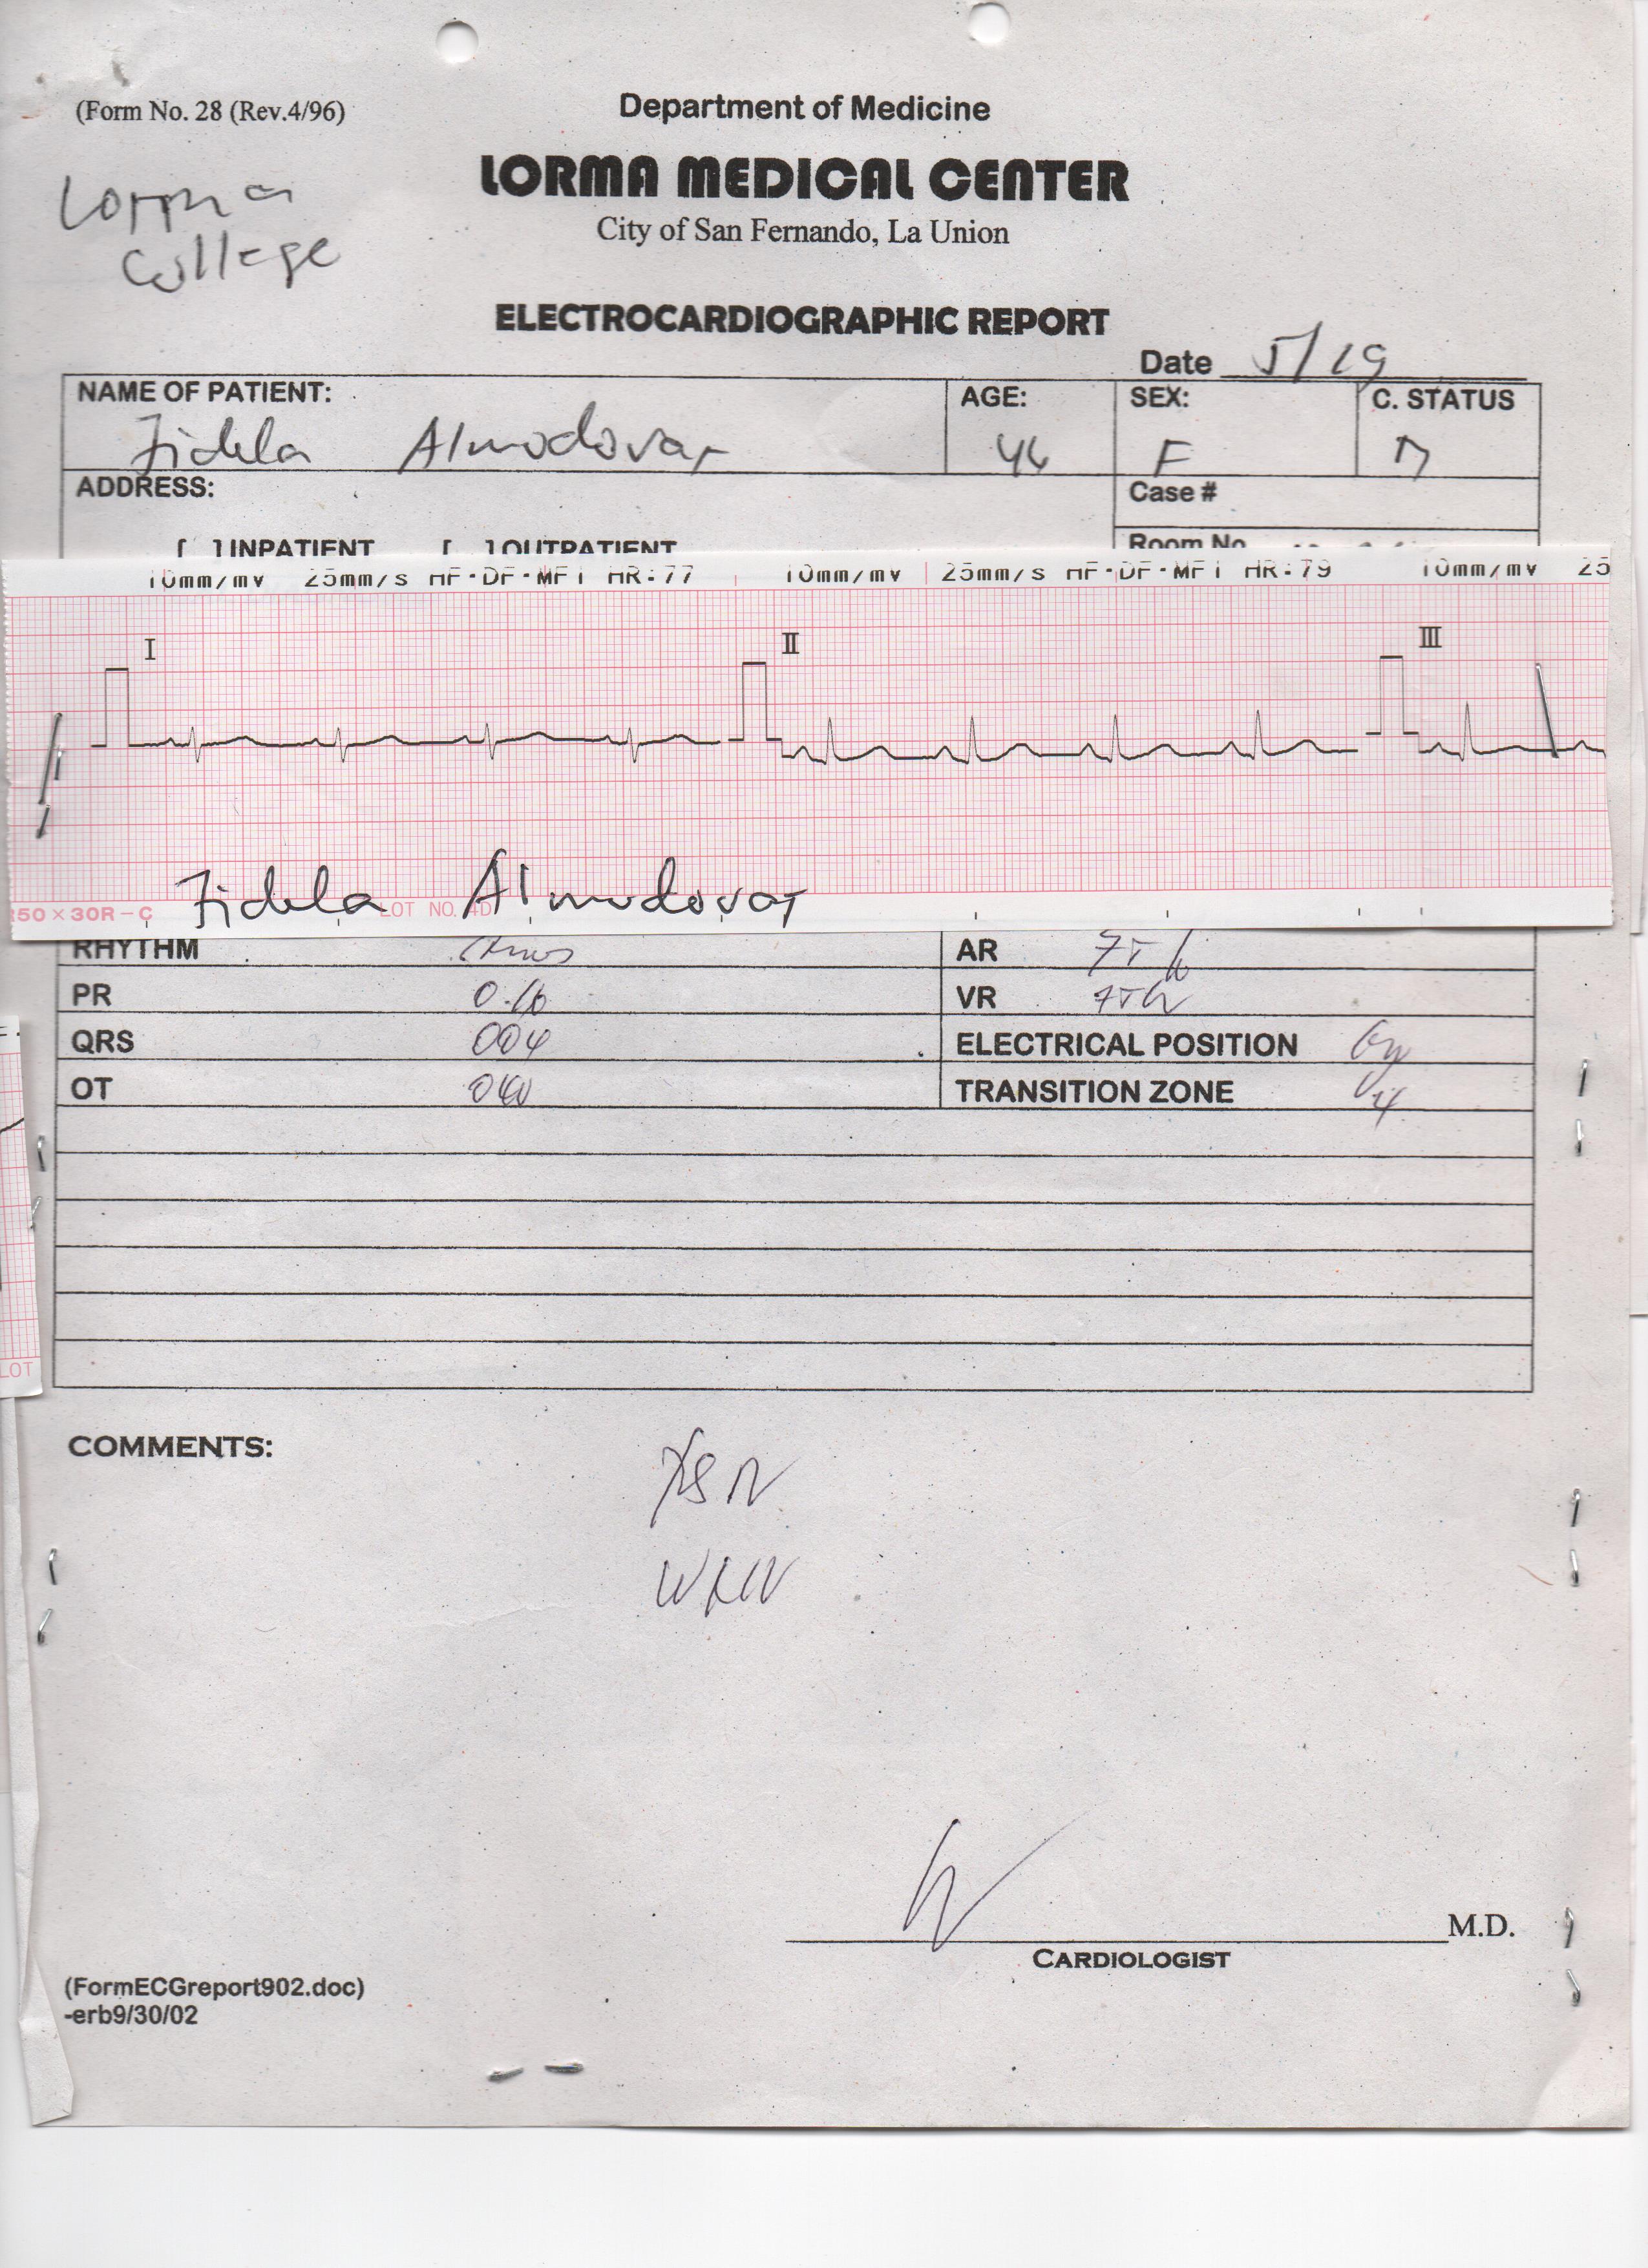 (Form No. 28 (Rev.4/96)
Department of Medicine
LORMA MEDICAL CENTER
City of San Fernando, La Union
Lorma
College
ELECTROCARDIOGRAPHIC REPORT
Date 5/19
NAME OF PATIENT: AGE: SEX: C. STATUS
Fidela Almodovar 46 F M
ADDRESS: Case #
[ ] INPATIENT [ ] OUTPATIENT Room No.
10mm/mv 25mm/s HF-DF-MF1 HR:77 10mm/mv 25mm/s HF-DF-MF1 HR:79 10mm/mv 25
I II III
Fidela Almodovar
50×30R-C LOT NO. 4D
RHYTHM AR
PR 0.16 VR
QRS 004 ELECTRICAL POSITION
OT TRANSITION ZONE V4
LOT
COMMENTS:
M.D.
CARDIOLOGIST
(FormECGreport902.doc)
-erb9/30/02